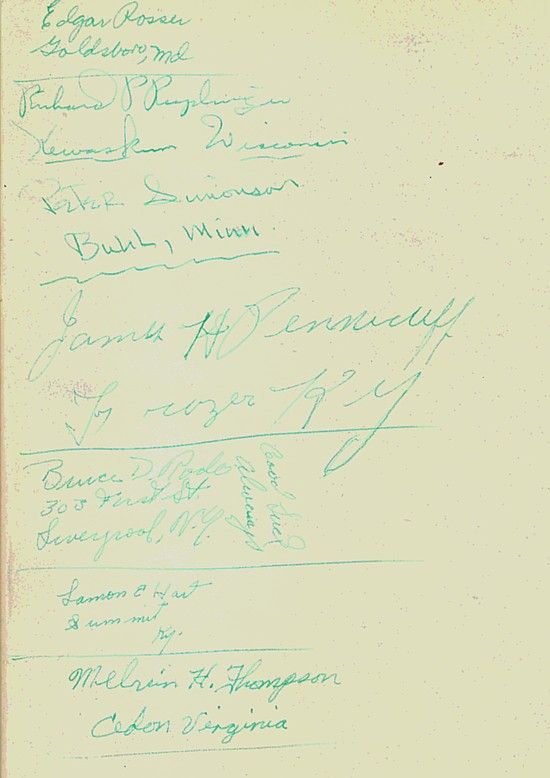 Edgar Rosser
Goldsboro, Md
Richard P
Kewaskum Wisconsin
Peter Simonson
Buhl, Minn
James H Pennicuff
Frazer Ky
Bruce D. Rode
303 First St.
Liverpool, N.Y.
Good Luck
Always
Lamon E Hart
Summit
Ky.
Melvin H. Thompson
Cedon Virginia